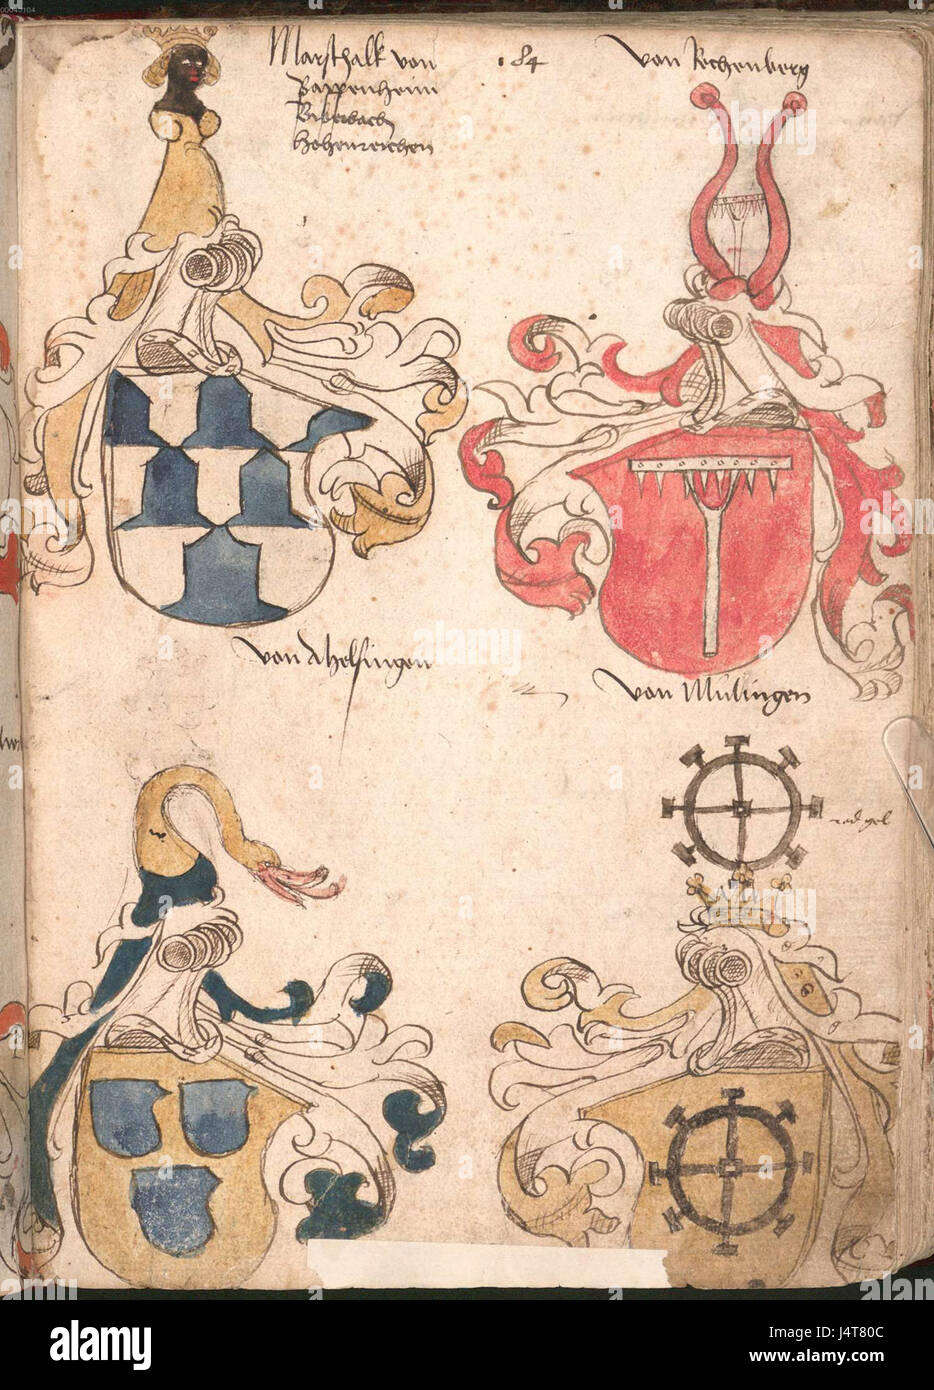 Marsthalk von
Bappenheim
Biberbach
Hohenreichen
184
von Rechenberg
von Ahelfingen
von Mülingen
rad gel
a
alamy stock photo
J4T80C
www.alamy.com